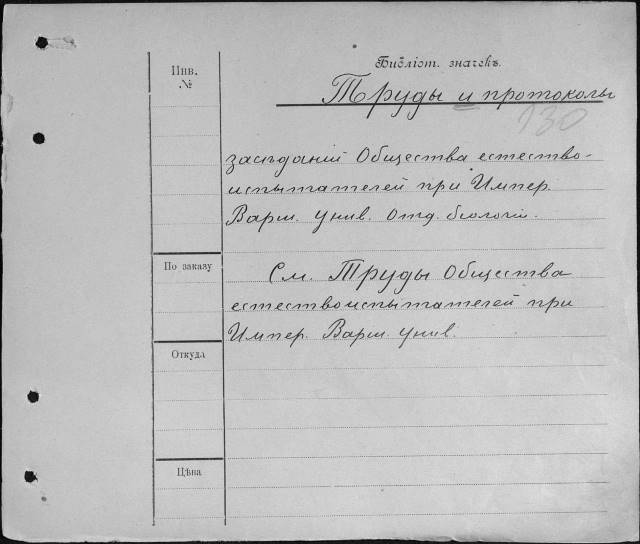 Инв.
№
Библіот. значекъ.
Труды и протоколы
130
засѣданій Общества естество-
испытателей при Импер.
Варш. унив. Отд. біологіи.
По заказу
См. Труды Общества
естествоиспытателей при
Импер. Варш. унив.
Откуда
Цѣна